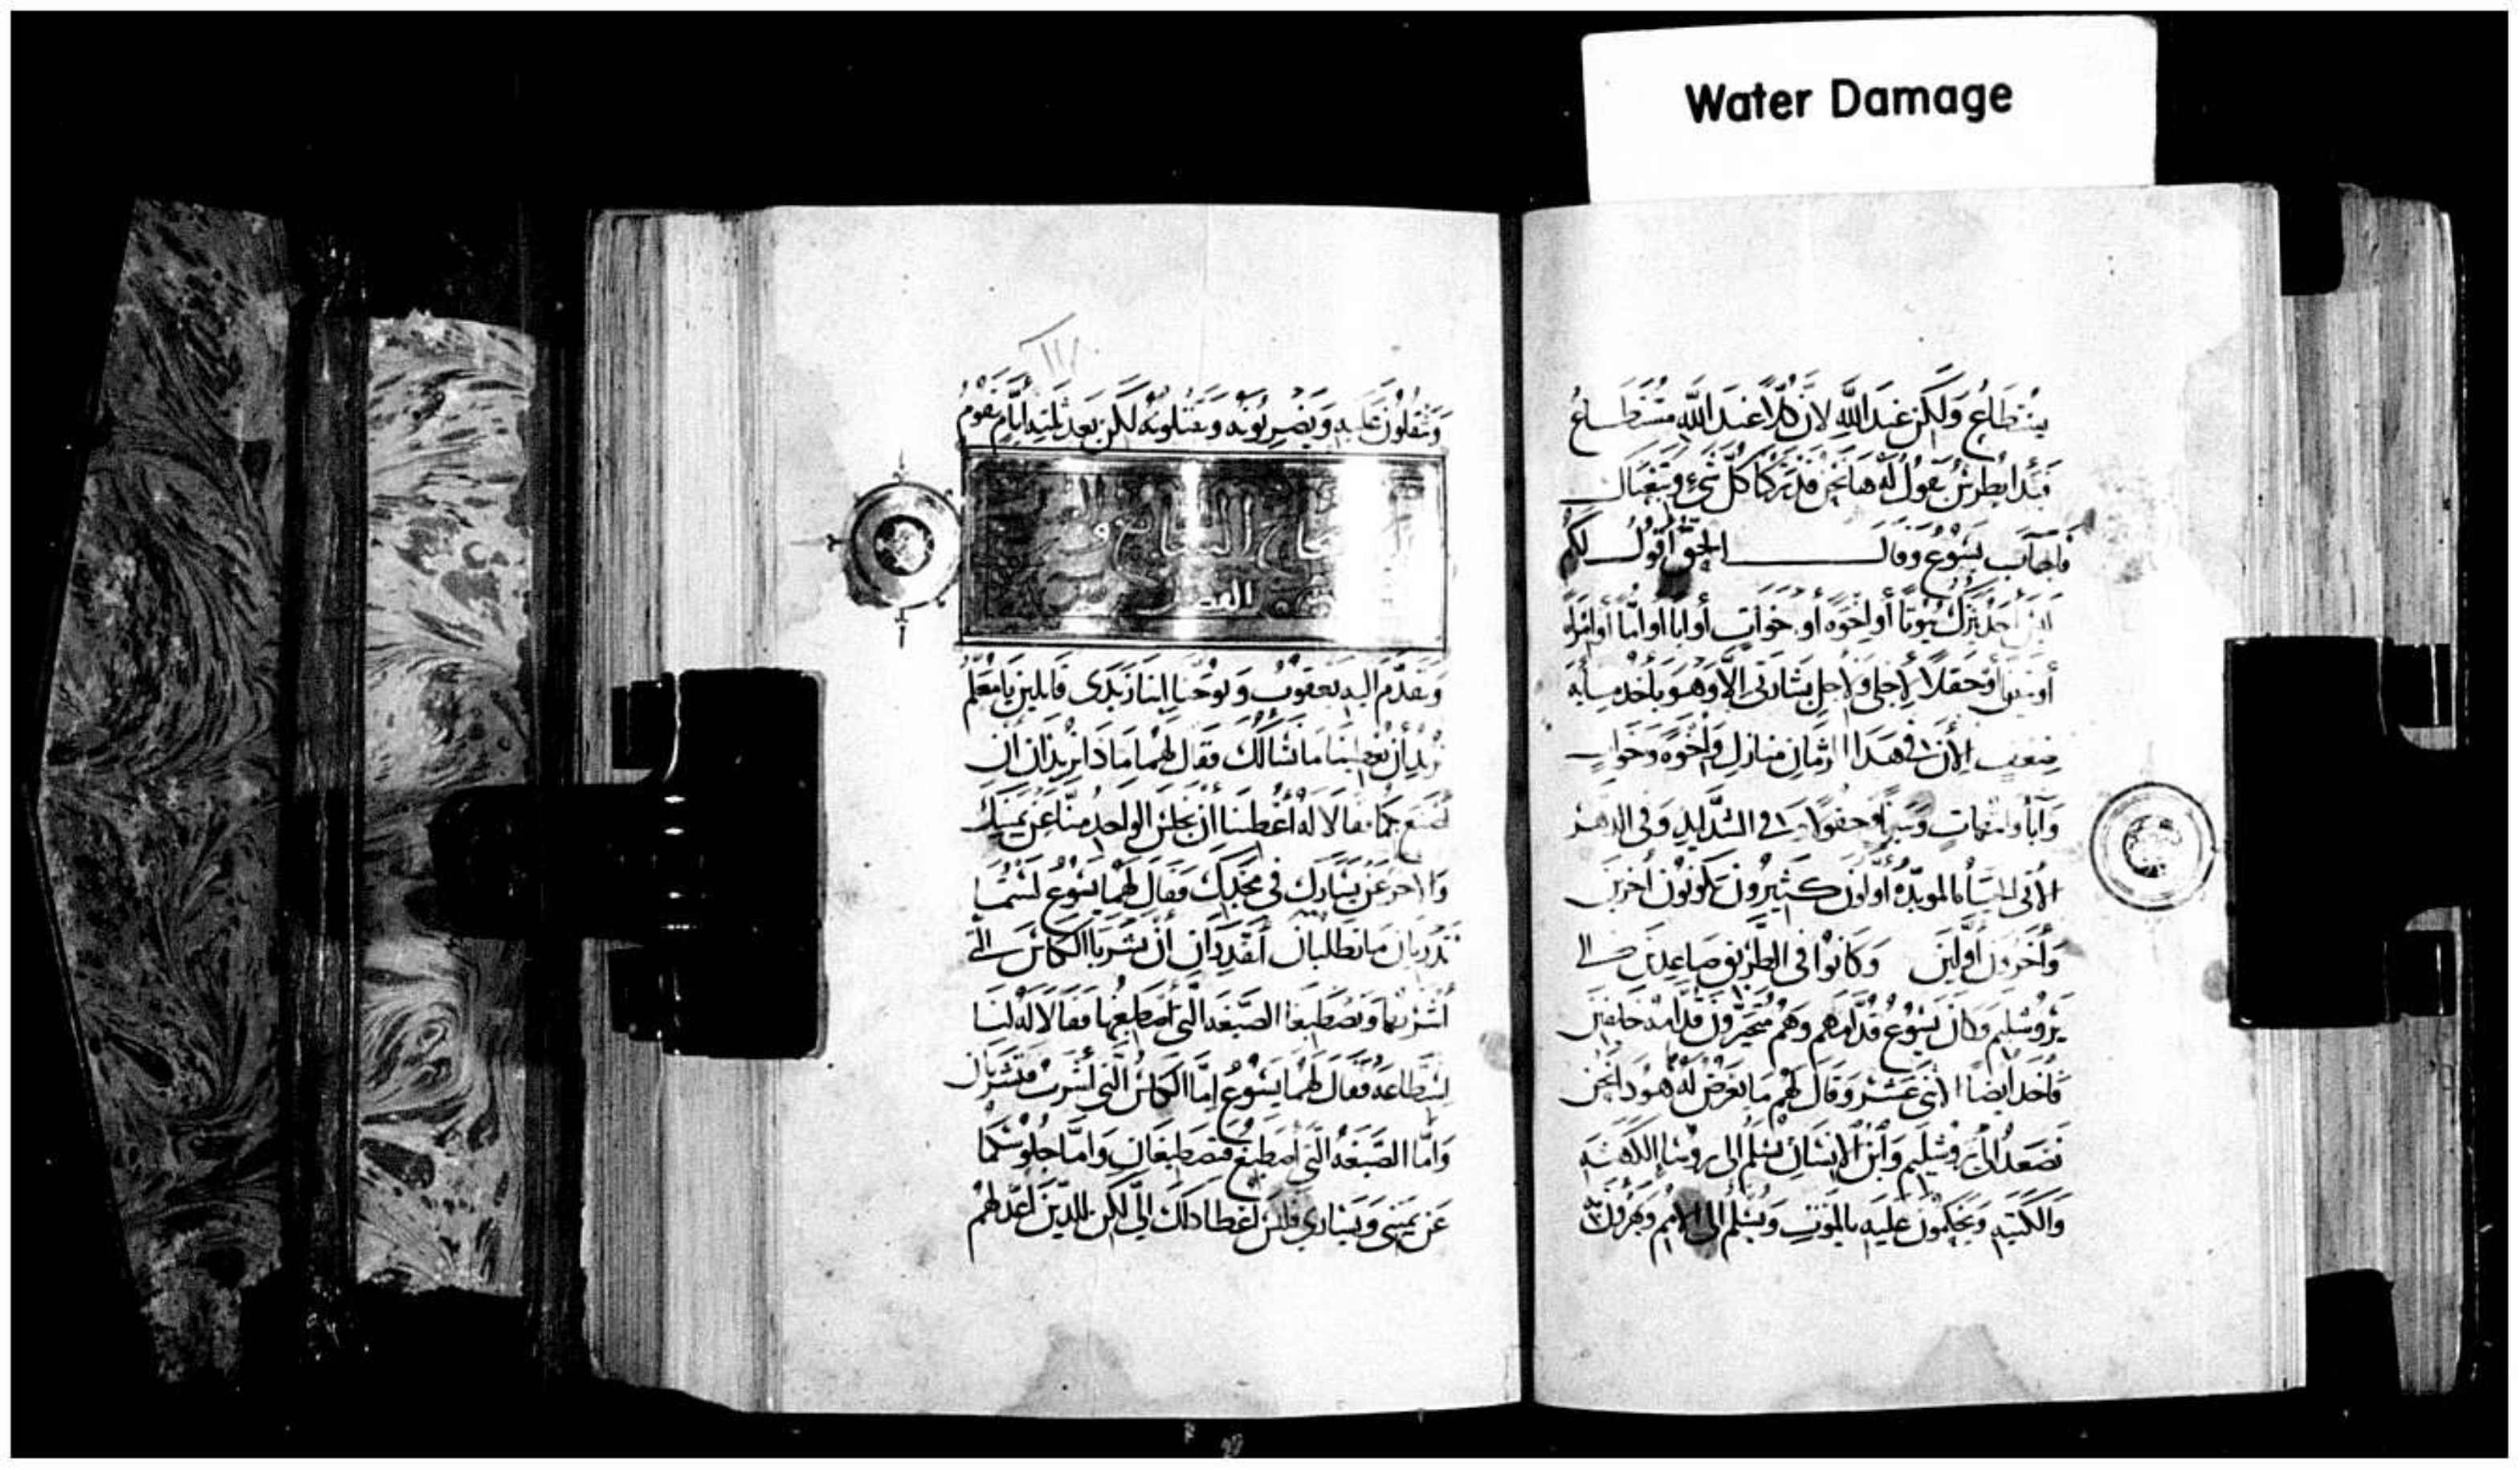 Water Damage
يستطاع ولكن عند الله لان كلا عند الله مستطاع
فبدا بطرس يقول له ها نحن قد تركنا كل شي وتبعناك
فاجاب يسوع وقال الحق أقول لكم
ليس أحد ترك بيوتا أو اخوه أو خوات أو ابا أو امّا أو امراه
أو بنين أو حقلا لاجلى ولاجل بشارتى الا وهو ياخد ميايه
ضعف الأن فى هدا الزمان منازل وأخوه وخوات
وآبا وامهات وبنينا وحقولا مع الشدايد وفى الدهر
الاتى الحياه الموبده أولون كثيرون يكونون أخرين
وأخرون أولين وكانوا فى الطريق صاعدين الى
يروشليم وكان يسوع قدامهم وهم متحيرون قدامه خايفين
فاخد أيضا الاثنى عشر وقال لهم ما يعرض له هودا نحن
نصعد الى يروشليم وابن الانسان يسلم الى روسا الكهنه
والكتبه ويحكمون عليه بالموت ويسلم الى الامم ويهزون به
ويتفلون عليه ويضربونه ويقتلونه لكن بعد ثلثه ايام يقوم
السابع
الفصل
وتقدم اليه يعقوب ويوحنا ابنا زبدى قايلين يا معلم
نريد أن تعطينا ما نسالك فقال لهما مادا تريدان ان
أصنع بكما فقالا له أعطنا أن يجلس الواحد منا عن يمينك
والاخر عن يسارك فى مجدك فقال لهما يسوع لستما
تدريان ما تطلبان أتقدران ان تشربا الكاس التى
أشربها وتصطبغا الصبغه التى أصطبغها فقالا له لنا
استطاعه فقال لهما يسوع امّا الكاس التى اشرب فتشربان
وامّا الصبغه التى أصطبغ فتصطبغان وامّا جلوسكما
عن يمينى ويسارى فليس اعطا داك الىّ لكن للدين أعدّ لهم